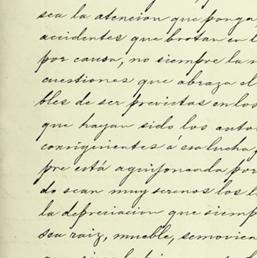 sea la atencion que ponga
accidentes que brotan en l
por causa, no siempre la m
cuestiones que abraza el
bles de ser previstas en los
que hayan sido los auto
convigientes á esa lucha,
pre está aguijoneada por
do sean muy serenos los l
la depreciacion que siemp
sea raiz, mueble, semovien